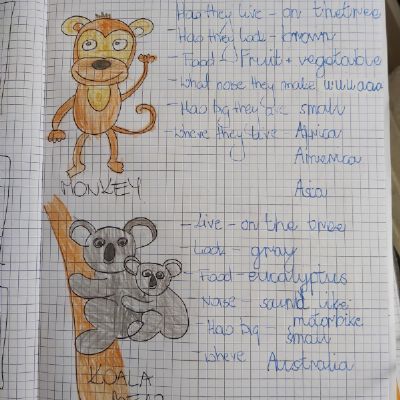 Hao they live - on thetree
Hao they look - brown
- Food Fruit + vegetable
- What nose they make uuuaaa
- Hao big they are small
- where they live - Africa
America
Asia
MONKEY
- Live - on the tree
- Look - gray
- Food - eucalyptus
- Noise - sound like
motorbike
- Hao big - small
- where Australia
KOALA